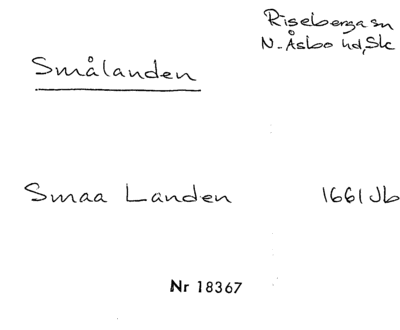 Riseberga sn
N. Åsbo hd, Sk
Smålanden
Smaa Landen 1661 Jb
Nr 18367